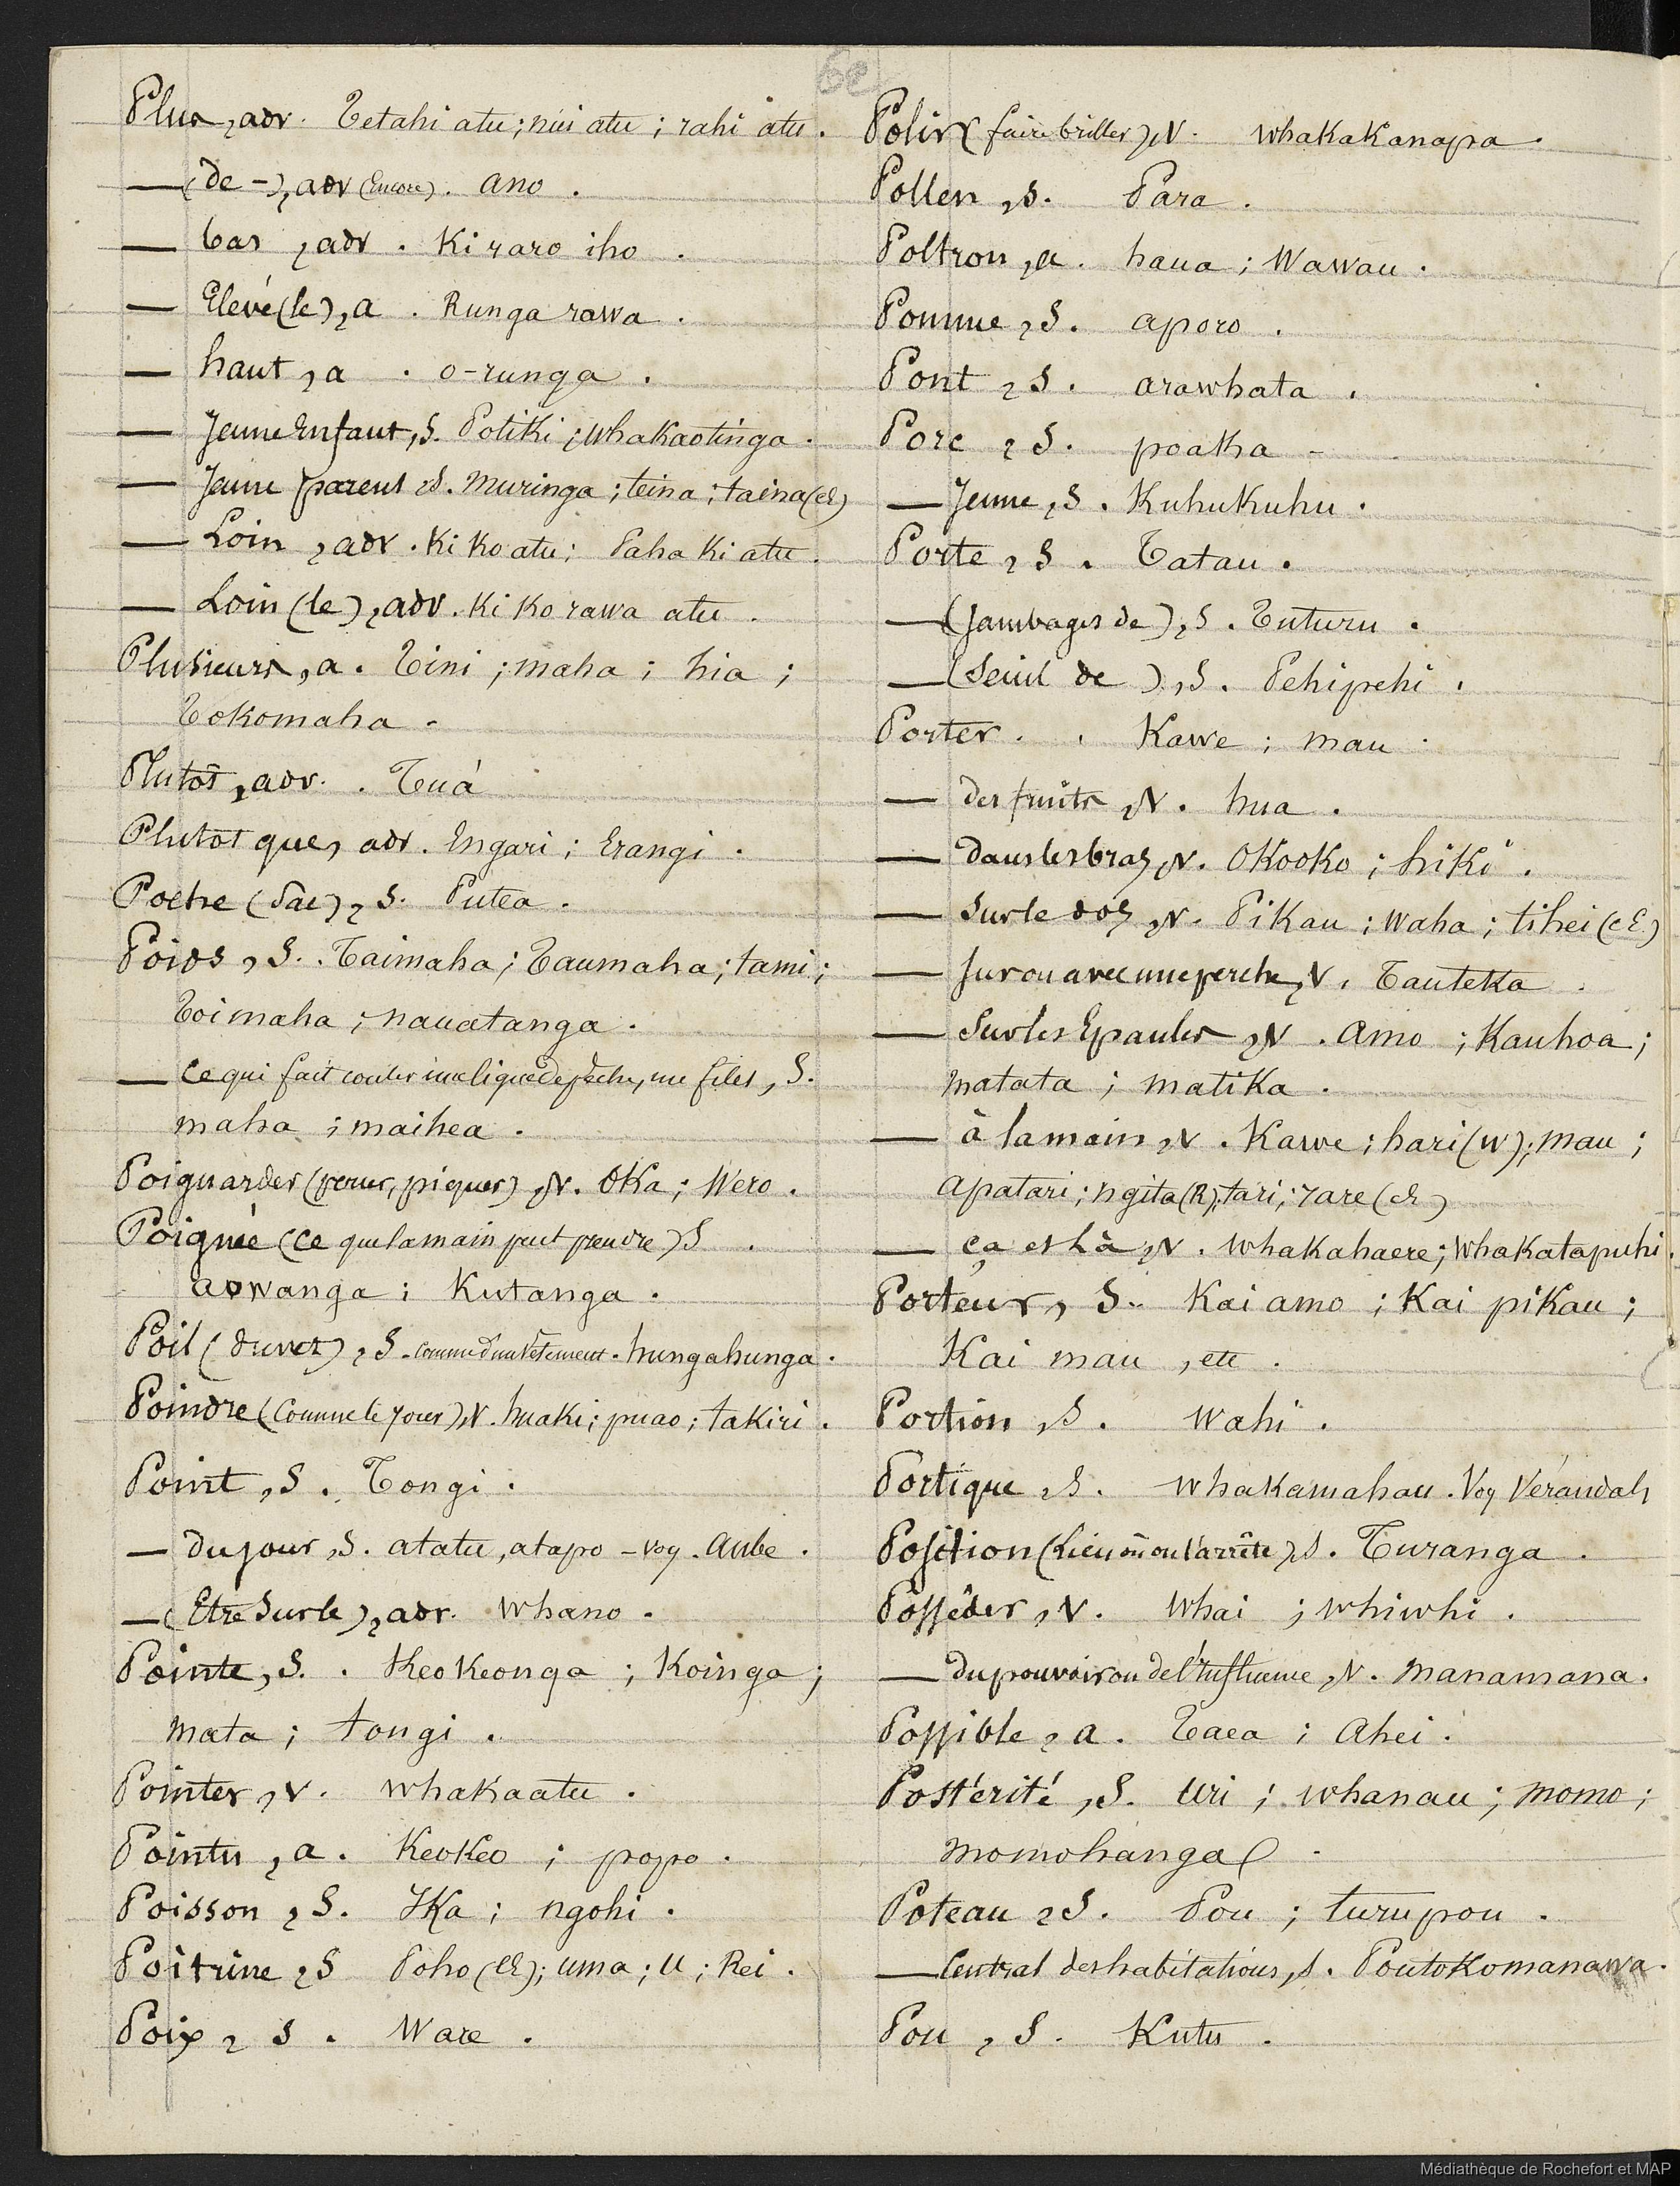 Plus, adv. Tetahi atu; nui atu; rahi atu.
— (de -), adv (Encore). ano.
— bas, adv. Ki raro iho.
— Elevé (le), a. Runga rawa.
— haut, a. o-runga.
— Jeune Enfant, S. Potiki; whakaotinga.
— Jeune parent, S. muringa; teina; taina (cE)
— Loin, adv. Ki ko atu; Paha ki atu.
— Loin (le), adv. Ki ko rawa atu.
Plusieurs, a. Tini; maha; hia;
Tokomaha.
Plutôt, adv. Tuá
Plutôt que, adv. Engari; Erangi.
Poche (Sac), S. Putea.
Poids, S. Taimaha; Taumaha; tami;
Toimaha; nauatanga.
— ce qui fait couler une ligne de pêche, un filet, S.
maha; maihea.
Poignarder (percer, piquer), V. OKa; Wero.
Poignée (ce que la main peut prendre) S.
aowanga; Kutanga.
Poil (duvet), S. comme d'un vêtement. hungahunga.
Poindre (Comme le jour), V. huaki; puao; takiri.
Point, S. Tongi.
— du jour, S. atatu, atapo – voy. Aube.
— (Etre sur le), adv. whano.
Pointe, S. Keokeonga; Koinga;
mata; tongi.
Pointer, V. whakaatu.
Pointu, a. KeoKeo; popo.
Poisson, S. IKa; ngohi.
Poitrine, S Poho (cE); uma; U; Rei.
Poix, S. Ware.
60
Polir (faire briller), V. whakaKanapa.
Pollen, S. Para.
Poltron, a. haua; Wawau.
Pomme, S. aporo.
Pont, S. arawhata.
Porc, S. poaka -
— Jeune, S. KuhuKuhu.
Porte, S. Tatau.
— (jambages de), S. Tuturu.
— (Seuil de), S. Pehipehi.
Porter. Kawe; mau.
— des fruits, V. hua.
— dans les bras, V. OKooKo; hiKi.
— Sur le dos, V. PiKau; waha; tihei (cE)
— sur ou avec une perche, V. TauteKa.
— Sur les Epaules, V. amo; Kauhoa;
matata; matiKa.
— à la main, V. Kawe; hari (W); mau;
apatari; ngita (R); tari; rare (cE)
— ça et là, V. whakahaere; whakatapuhi.
Porteur, S. Kai amo; Kai piKau;
Kai mau, etc.
Portion, S. wahi.
Portique, S. whakamahau. Voy Vérandah
Position (Lieu où on s'arrête), S. Turanga.
Posséder, V. whai; whiwhi.
— du pouvoir ou de l'influence, V. manamana.
Possible, a. Taea; Ahei.
Postérité, S. Uri; whanau; momo;
momohanga
Poteau, S. Pou; turupou.
— Central des habitations, S. PoutoKomanawa.
Pou, S. Kutu.
Médiathèque de Rochefort et MAP